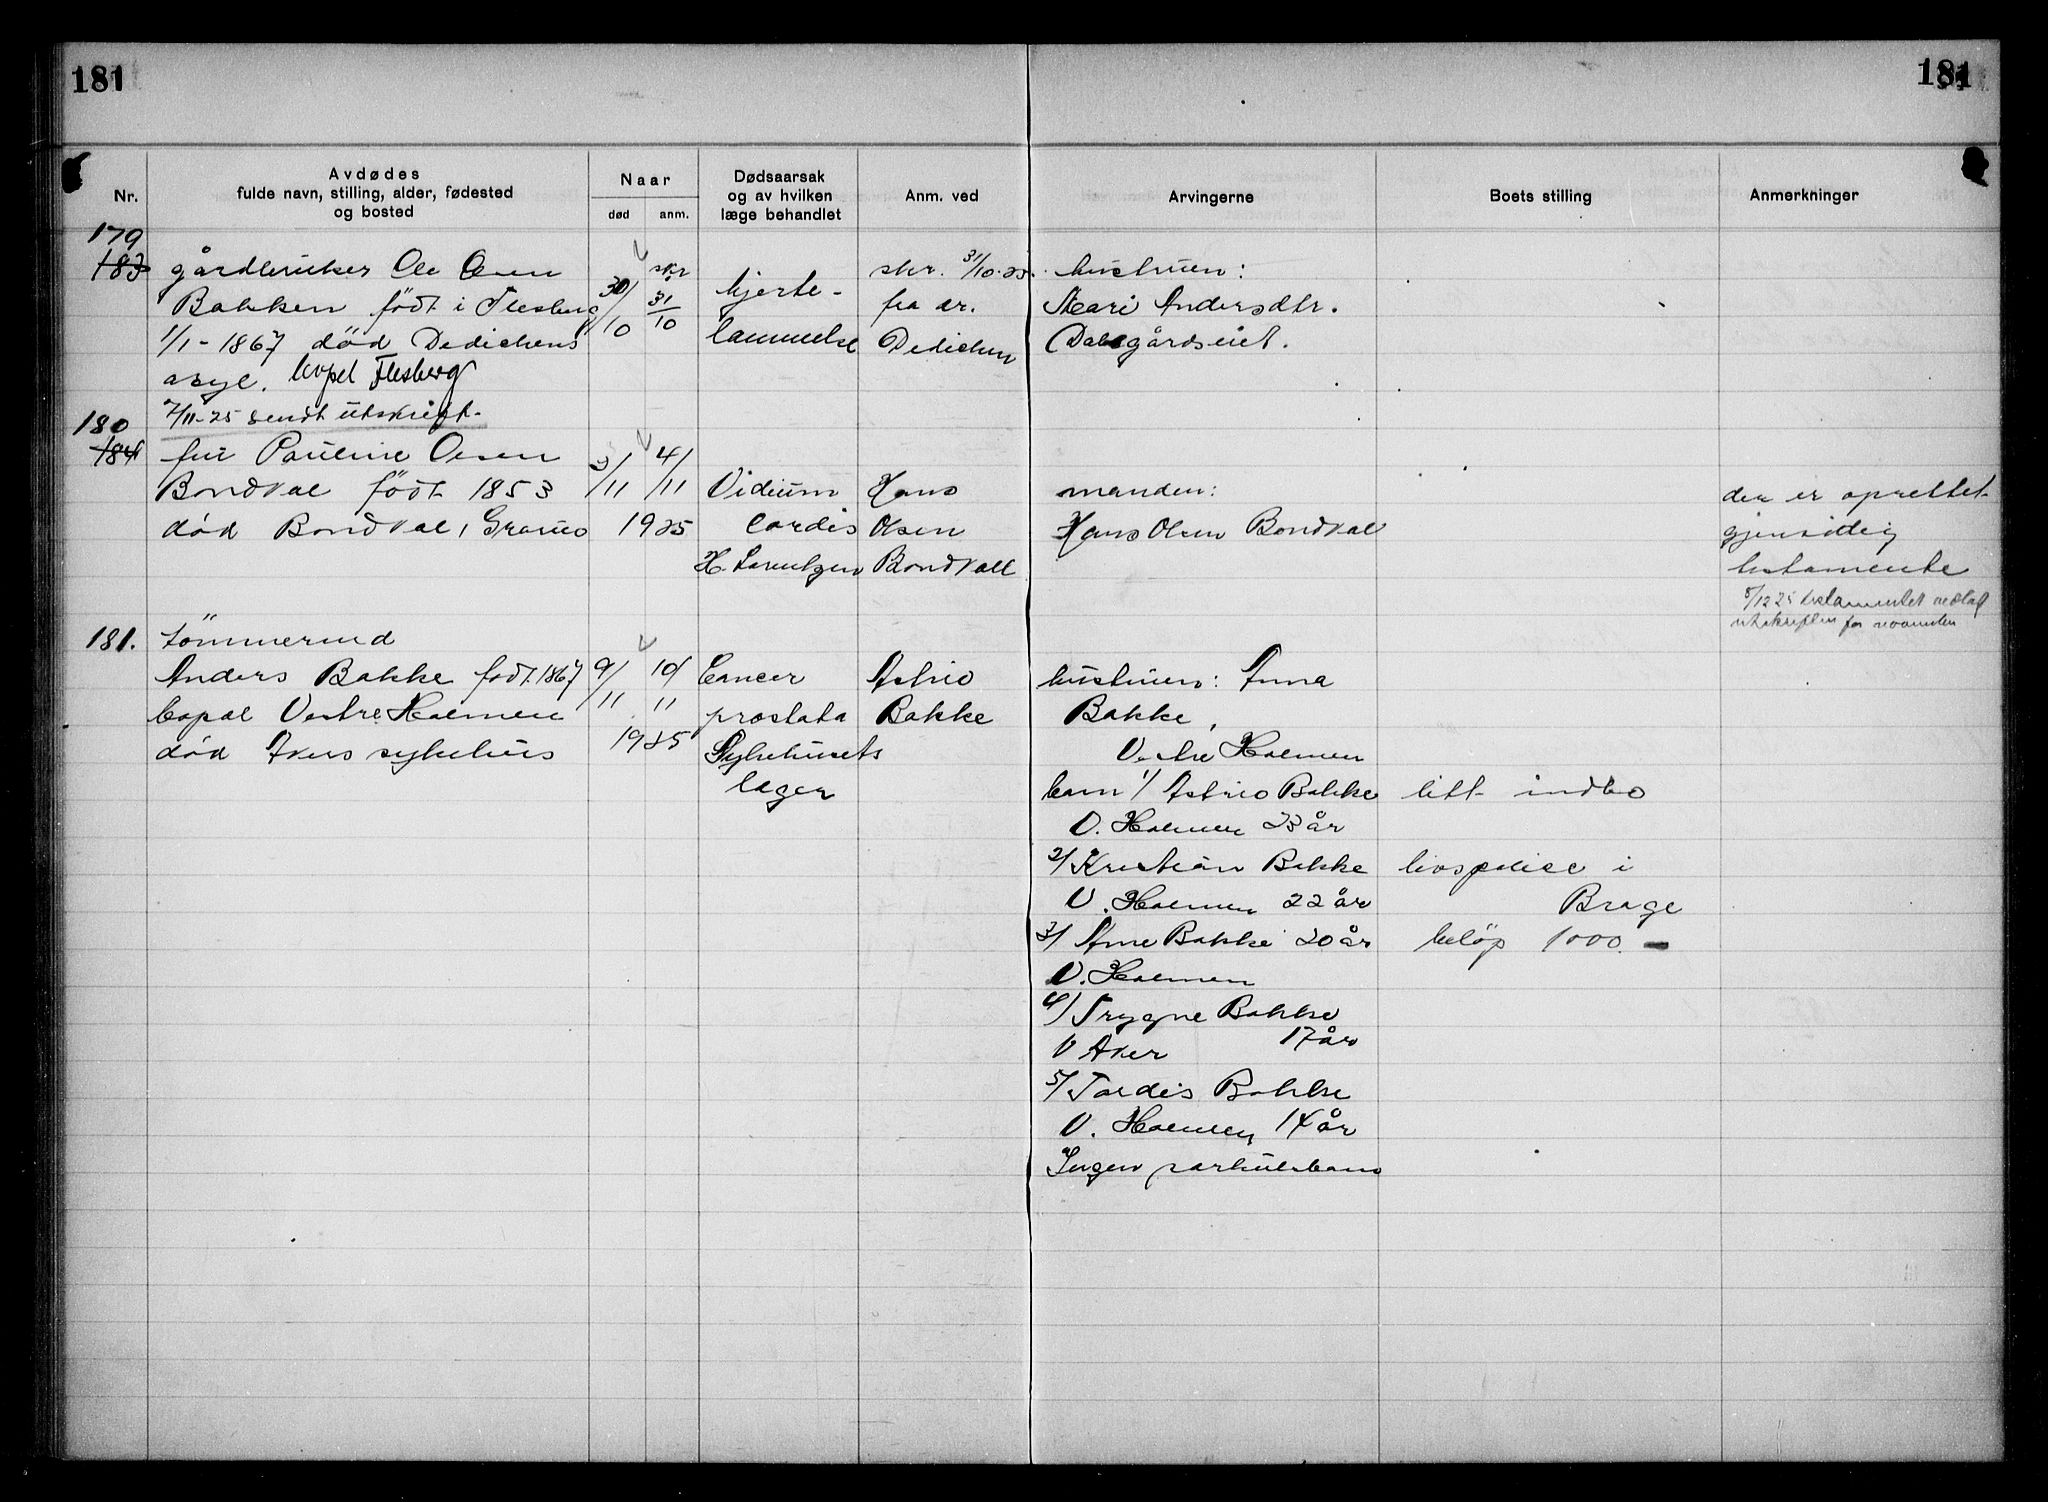 181
181
Nr.
Avdødes
fulde navn, stilling, alder, fødested
og bosted
Naar
død
anm.
Dødsaarsak
og av hvilken
læge behandlet
Anm. ved
Arvingerne
Boets stilling
Anmerkninger
179
183
gårdbruker Ole Olsen
Bakken født i Flesberg
1/1-1867 død Dedichens
asyl. bopel Flesberg
7/11-25 sendt utskrift.
30/10
skr 31/10
hjerte-
lammelse
skr. 31/10-25.
fra dr.
Dedichen
hustruen:
Mari Andersdtr.
gårdseiet.
180
184
fru Pauline Olsen
Bondkal født 1853
død Bondkal, Grorud
3/11 4/11
1925
Vidium
cordis
H. Lorentzen
Hans
Olsen
Bondkall
manden:
Hans Olsen Bondkal
der er oprettet
gjensidig
testamente
5/12 25 testamentet
181.
tömmermd
Anders Bakke født 1867
bopal Vestre Holmen
død Akers sykehus
9/11 10/11
1925
Cancer
prostata
Sykehusets
læger
Astrid
Bakke
hustruen: Anna
Bakke,
Vestre Holmen
barn 1/ Astrid Bakke
V. Holmen 23 år
2/ Kristian Bakke
V. Holmen 22 år
3/ Arne Bakke 20 år
V. Holmen
4/ Trygve Bakke
V Aker 17 år
5/ Tordis Bakke
V. Holmen 14 år
Ingen særkulsbarn
litt indbo
livspolise i
Brage
beløp 1000.-